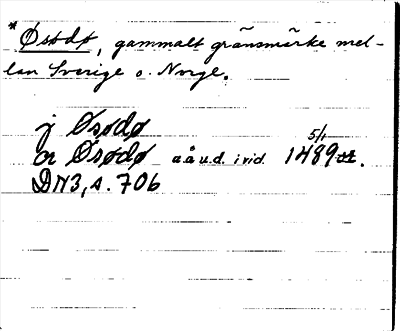 * Øsødø, gammalt gränsmärke mel-
lan Sverige o. Norge.
j Øsødø
or Øsødø a å u.d. i vid. 5/1 1489 .
DN 3, s. 706